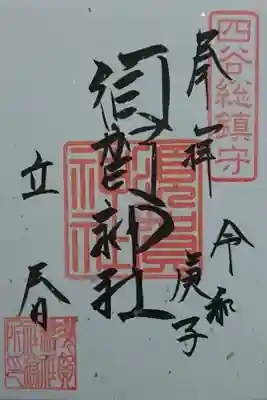 四谷総鎮守
奉拝
令和
庚子
須賀神社
須賀神社
立春